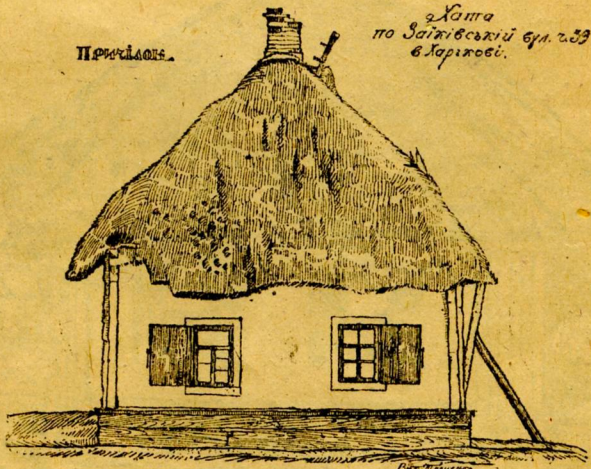 Причілок.
Хата
по Заїківській вул. ч. 39
в Харькові.